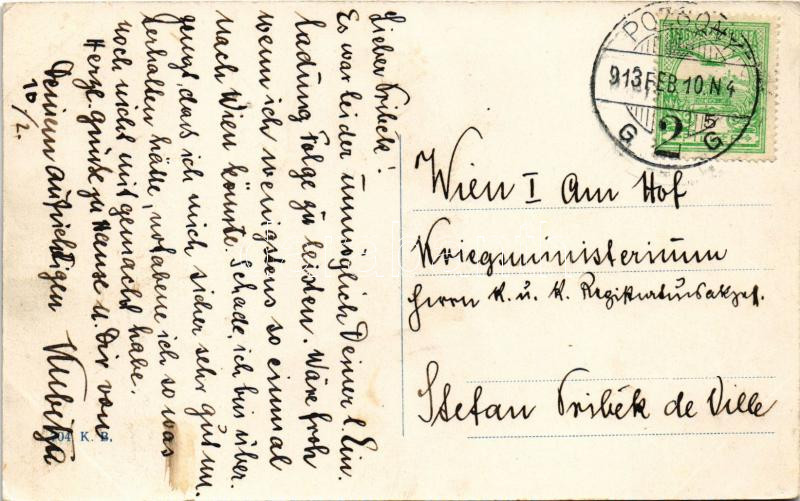 Lieber Pribék!
Es war leider unmöglich Deiner l. Ein-
ladung Folge zu leisten. Wäre froh
wenn ich wenigstens so einmal
nach Wien könnte. Schade, ich bin über-
zeugt, daß ich mich sicher sehr gut un-
terhalten hätte, notabene ich so was
noch nicht mitgemacht habe.
Herzl. Grüße zu Hause u. Dir von
Deinem aufrichtigen
10/2.
POZSONY
913 FEB. 10. N4
5
G G
2
Wien I Am Hof
Kriegsministerium
Herrn K. u. K.
Stefan Pribék de Ville
K. B.